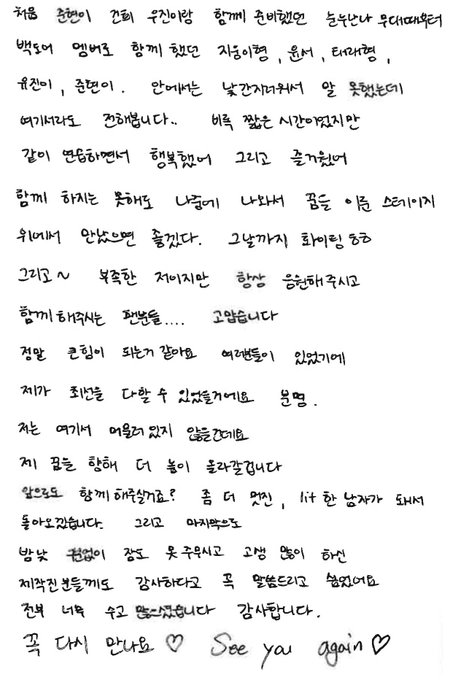 처음 준현이 건희 우진이랑 함께 준비했던 눈누난나 무대때부터
백도어 멤버로 함께 했던 지웅이형, 윤서, 태래형,
유진이, 준현이. 안에서는 낯간지러워서 말 못했는데
여기서라도 전해봅니다.. 비록 짧은 시간이었지만
같이 연습하면서 행복했어 그리고 즐거웠어
함께 하지는 못해도 나중에 나와서 꿈을 이룬 스테이지
위에서 만났으면 좋겠다. 그날까지 화이팅 ㅎㅎ
그리고~ 부족한 저이지만 항상 응원해주시고
함께해주시는 팬분들.... 고맙습니다
정말 큰힘이 되는거 같아요 여러분들이 있었기에
제가 최선을 다할 수 있었을거에요 분명.
저는 여기서 머물러 있지 않을건데요
제 꿈을 향해 더 높이 올라갈겁니다
앞으로도 함께 해주실거죠? 좀 더 멋진, lit한 남자가 돼서
돌아오겠습니다. 그리고 마지막으로
밤낮 없이 잠도 못 주무시고 고생 많이 하신
제작진분들께도 감사하다고 꼭 말씀드리고 싶었어요
전부 너무 수고 많으셨습니다 감사합니다.
꼭 다시 만나요 ♡ See you again ♡